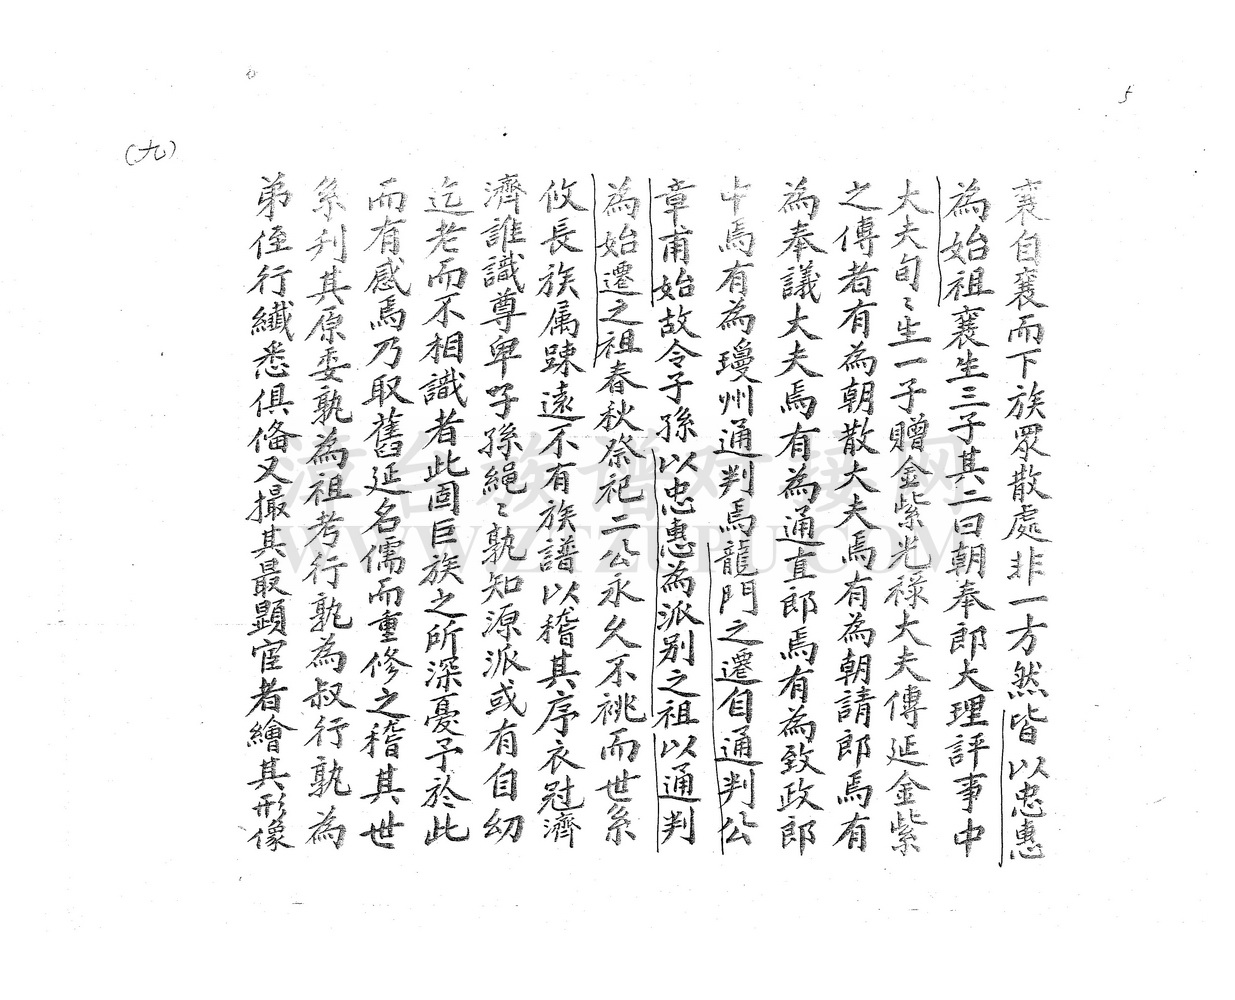 5
襄自襄而下族眾散處非一方然皆以忠惠
為始祖襄生三子其二曰朝奉郎大理評事中
大夫旬〻生一子贈金紫光祿大夫傳延金紫
之傳者有為朝散大夫焉有為朝請郎焉有
為奉議大夫焉有為通直郎焉有為致政郎
中焉有為瓊州通判焉龍門之遷自通判公
章甫始故令子孫以忠惠為派別之祖以通判
為始遷之祖春秋祭祀二公永久不祧而世系
攸長族属踈遠不有族譜以稽其序衣冠濟
濟誰識尊卑子孫繩〻孰知源派或有自幼
迄老而不相識者此固巨族之所深憂予於此
而有感焉乃取舊延名儒而重修之稽其世
系列其原委孰為祖考行孰為叔行孰為
弟侄行纖悉俱俻又撮其最顕宦者繪其形像
(九)
漳台族谱对接网
WWW.ZTZUPU.COM